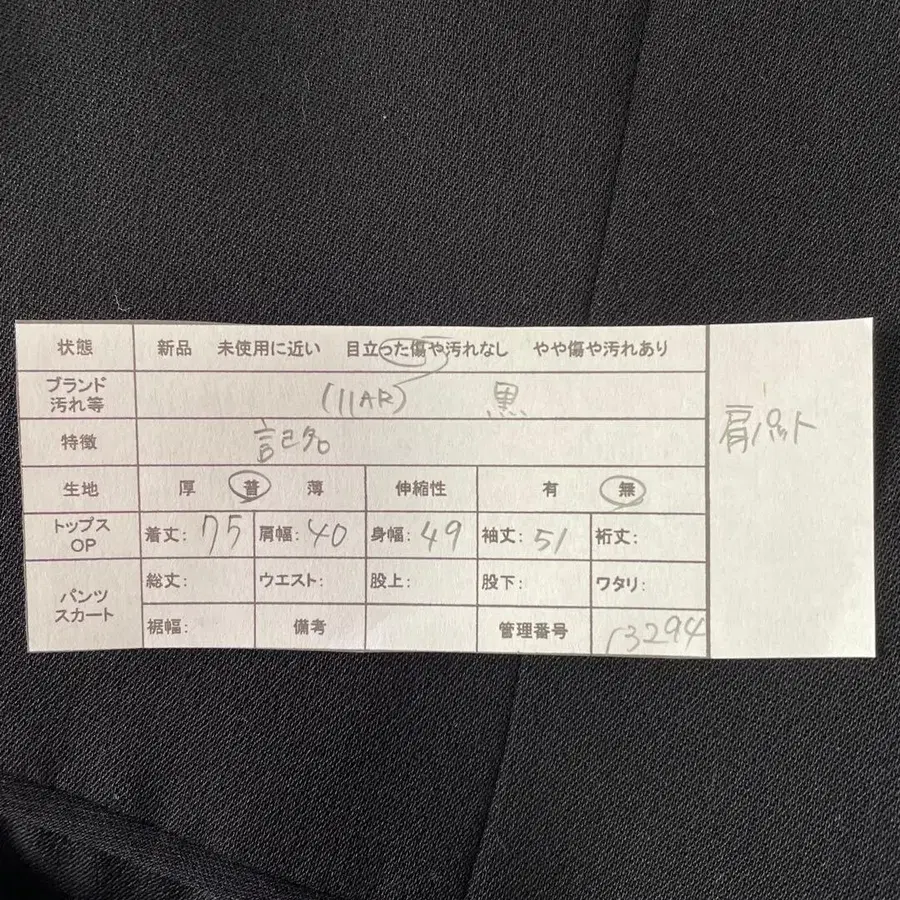 状態 新品 未使用に近い 目立った傷や汚れなし やや傷や汚れあり
ブランド
汚れ等 (11AR) 黒
特徴 記名
生地 厚 普 薄 伸縮性 有 無
トップス
OP 着丈: 75 肩幅: 40 身幅: 49 袖丈: 51 裄丈:
パンツ
スカート 総丈: ウエスト: 股上: 股下: ワタリ:
裾幅: 備考 管理番号 r3294
肩パット